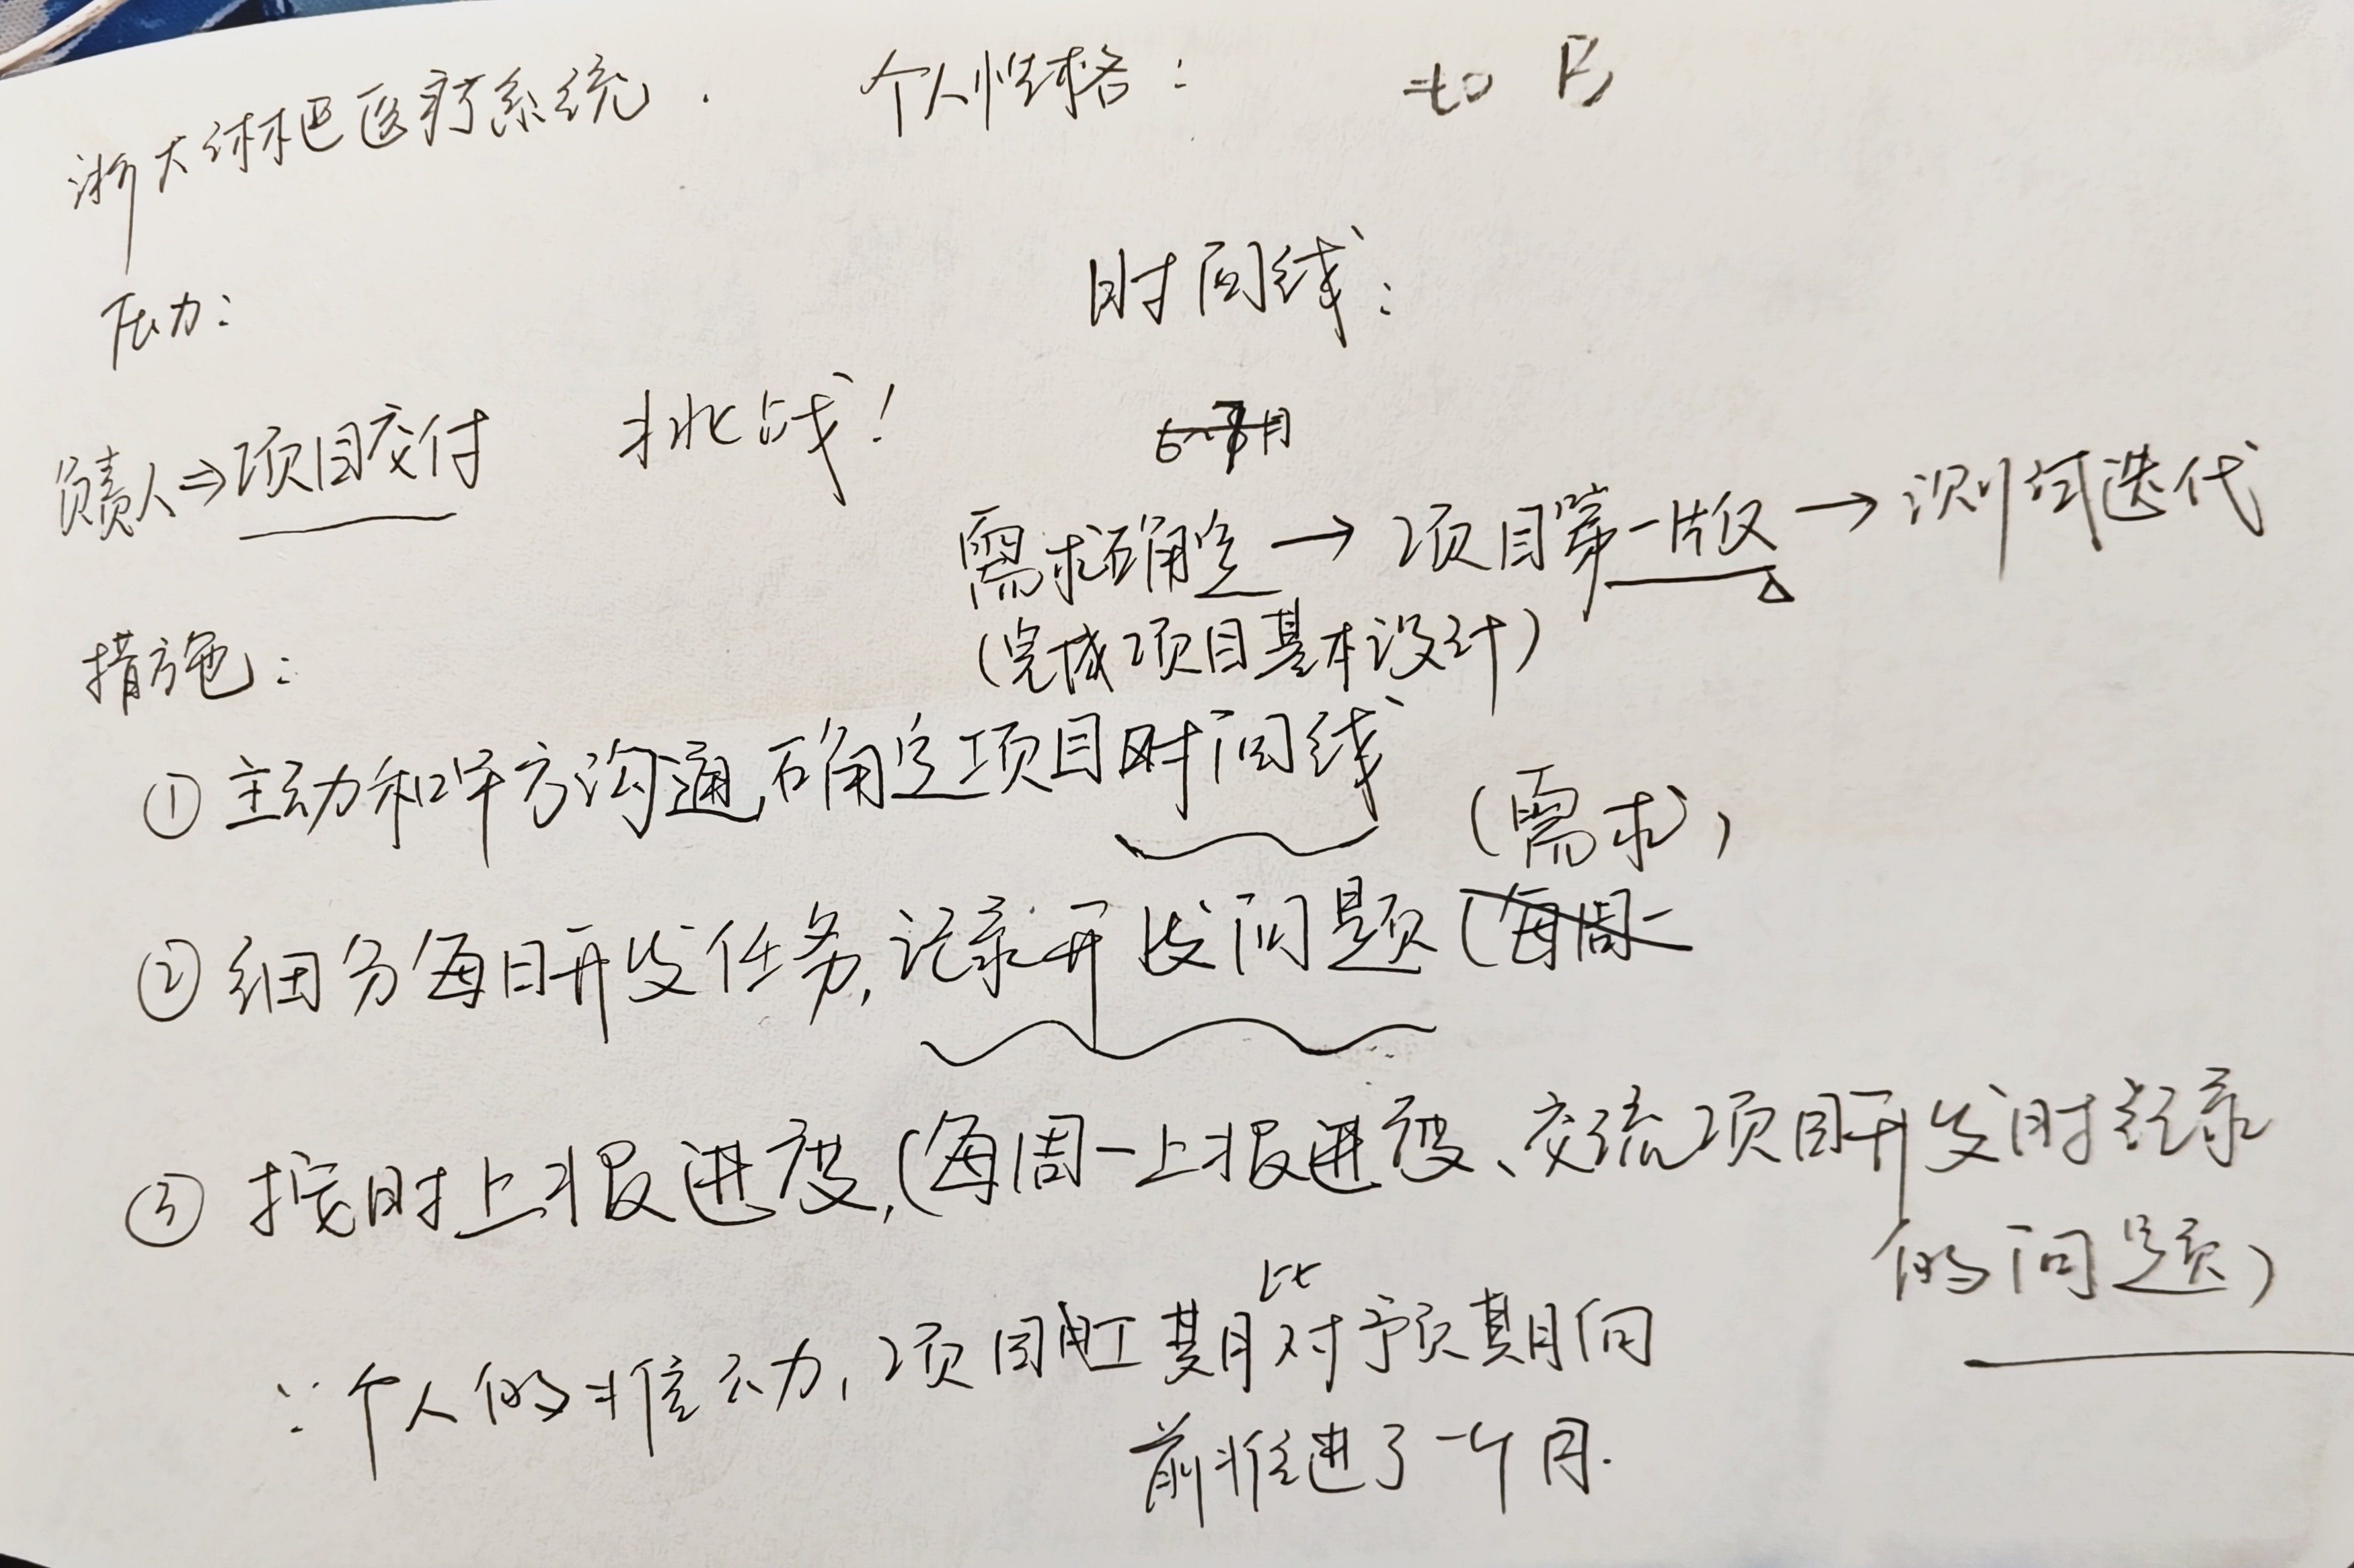 浙大淋巴医疗系统. 个人性格: to B
压力: 时间线:
负责人⇒项目交付 挑战!
6~7月
需求确定→项目第一版→测试迭代
(完成项目基本设计)
措施:
①主动和甲方沟通,确定项目时间线
(需求,
②细分每日开发任务,记录开发问题(每周一
③按时上报进度,(每周一上报进度、交流项目开发时记录
的问题)
∵个人的推动,项目工期比对预期向
前推进了一个月.